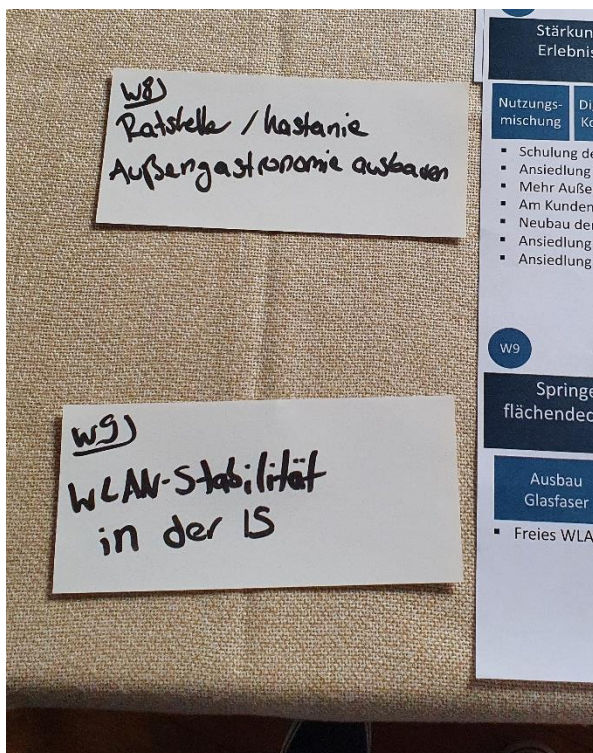 W8)
Ratskeller / Kastanie
Außengastronomie ausbauen
W9)
WLAN-Stabilität
in der IS
Stärkun
Erlebnis
Nutzungs-
mischung
Di
Ko
▪ Schulung de
▪ Ansiedlung
▪ Mehr Auße
▪ Am Kunden
▪ Neubau der
▪ Ansiedlung
▪ Ansiedlung
W9
Springe
flächendec
Ausbau
Glasfaser
▪ Freies WLA